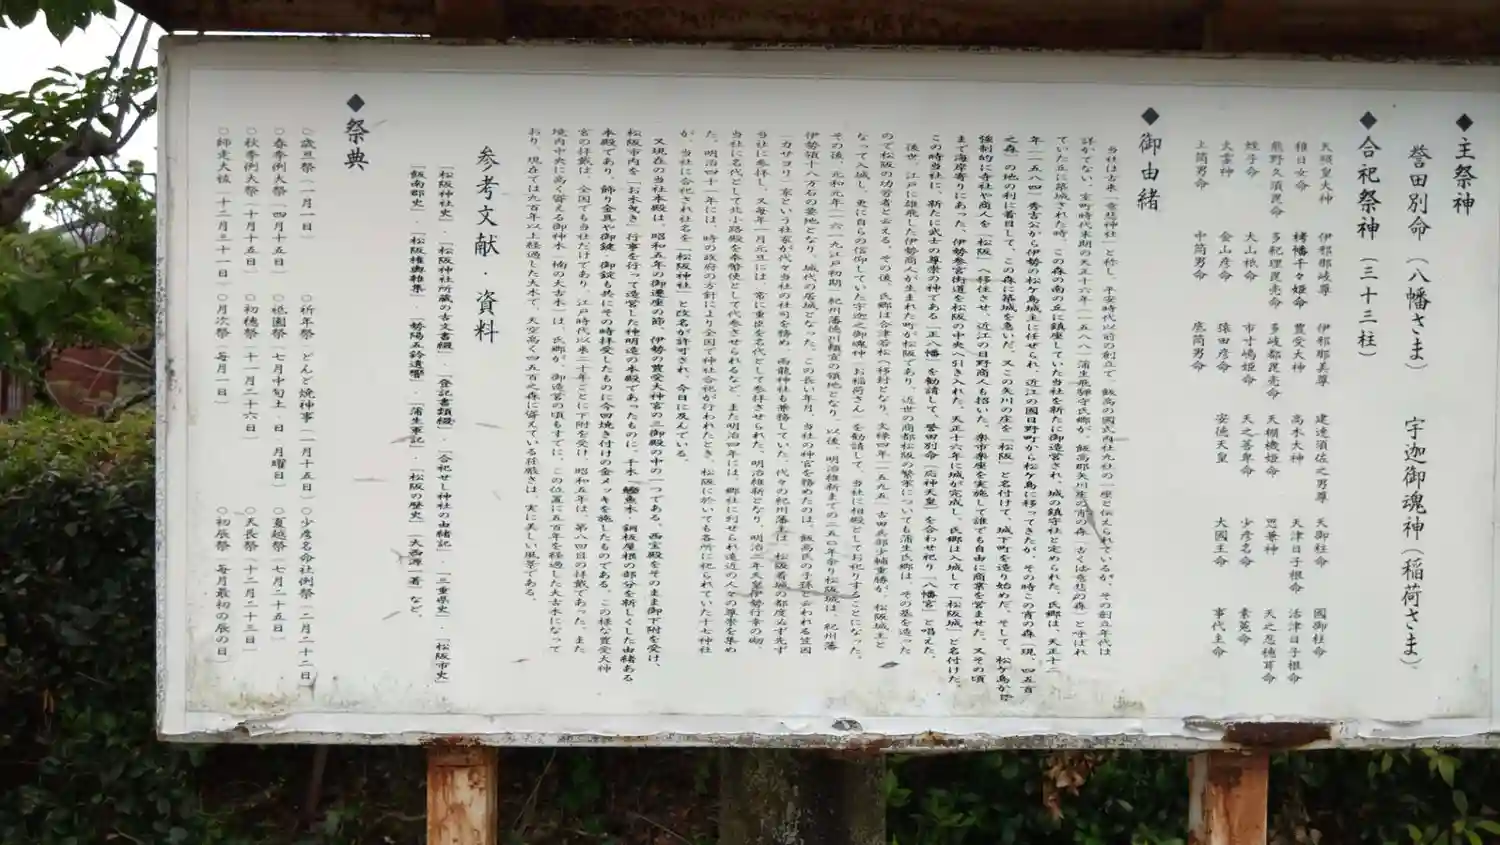 ◆主祭神
誉田別命（八幡さま） 宇迦御魂神（稲荷さま）
◆合祀祭神（三十三柱）
天照皇大神 伊邪那岐尊 伊邪那美尊 建速須佐之男尊 天御柱命 國御柱命
稚日女命 栲幡千々姫命 豊受大神 高木大神 天津日子根命 活津日子根命
熊野久須毘命 多紀理毘売命 多岐都毘売命 天棚機姫命 思兼神 天之忍穂耳命
蛭子命 大山祇命 市寸嶋姫命 天之菩卑命 少彦名命 素戔命
火霊神 金山彦命 猿田彦命 安徳天皇 大國主命 事代主命
上筒男命 中筒男命 底筒男命
◆御由緒
当社は古来「意悲神社」と称し、平安時代以前の創立で、飯高の國式内社九社の一座と伝えられているが、その創立年代は
詳かでない。室町時代末期の天正十六年（一五八八）蒲生飛騨守氏郷が、飯高郡矢川庄の宵の森（古くは意悲の森）と呼ばれ
ていた丘に築城された時、この森の南の丘に鎮座していた当社を新たに御造営され、城の鎮守社と定められた。氏郷は、天正十二
年（一五八四）秀吉公から伊勢の松ケ島城主に任せられ、近江の國日野町から松ケ島に移ってきたが、その時この宵の森（現、四五百
之森）の地の利に着目して、この森に築城を急いだ。又この矢川の庄を「松阪」と名付けて、城下町を造り始めた。そして、松ケ島から
強制的に寺社や商人を「松阪」へ移住させ、近江の日野商人も招いた。楽市楽座を実施して誰でも自由に商業を営ませた。又その頃
まで海岸寄りにあった、伊勢参宮街道を松阪の中央へ引き入れた。天正十六年に城が完成し、氏郷は入城して「松阪城」と名付けた。
この時当社に、新たに武士の尊崇の神である「正八幡」を勧請して、誉田別命（応神天皇）を合わせ祀り「八幡宮」と唱えた。
後世、江戸に雄飛した伊勢商人が生まれた町が松阪であり、近世の商都松阪の繁栄についても蒲生氏郷は、その基を造った
ので松阪の功労者と云える。その後、氏郷は会津若松へ移封となり、文禄四年（一五九五）古田兵部少輔重勝が、松阪城主と
なって入城し、更に自らの信仰していた宇迦之御魂神（お稲荷さん）を勧請して、当社に相殿としてお祀りすることになった。
その後、元和元年（一六一九）江戸初期、紀州藩徳川頼宣の領地となり、以後、明治維新までの二五〇年余り松阪城は、紀州藩
伊勢領十八万石の要地となり、城代の居城となった。この長い年月、当社の神官を務めたのは、飯高氏の子孫と云われる笠因
（カサヨリ）家という社家が代々当社の社司を務め、雨龍神社も兼務していた。代々の紀州藩主は、松阪着城の都度必ず先ず
当社に参拝し、又毎年一月元旦には、常に重臣を名代として参拝させられた。明治維新となり、明治二年天皇伊勢行幸の砌、
当社に名代として北小路殿を奉幣使として代参させられるなど、また明治四年には、郷社に列せられ遠近の人々の尊崇を集め
た。明治四十一年には、時の政府の方針により全国で神社合祀が行われたとき、松阪に於いても各所に祀られていた十七神社
が、当社に合祀され社名を「松阪神社」と改名が許可され、今日に及んでいる。
又現在の当社本殿は、昭和五年の御遷座の節、伊勢の豊受大神宮の三御殿の中の一つである、西宝殿をそのまま御下附を受け、
松阪市内を「お木曳き」行事を行って造営した神明造の本殿であったものに、千木、鰹魚木、銅板屋根の部分を新しくした由緒ある
本殿であり、飾り金具や御鍵・御錠も共にその時拝受したものに今回焼き付けの金メッキを施したものである。この様な豊受大神
宮の拝戴は、全国でも当社だけであり、江戸時代以来二十年ごとに下附を受け、昭和五年は、第八四回の拝戴であった。また
境内中央に高く聳える御神木（楠の大古木）は、氏郷が、御造営の頃もすでに、この位置に五百年を経過した大古木になって
おり、現在では九百年以上経過した大木で、天空高く四五百之森に聳えている荘厳さは、実に美しい風景である。
参考文献・資料
「松阪神社史」・「松阪神社所蔵の古文書綴」・「登記書類綴」・「合祀せし神社の由緒記」・「三重県史」・「松阪市史」
「飯南郡史」・「松阪権輿雑集」・「勢陽五鈴遺響」・「蒲生軍記」・「松阪の歴史」（大西源一著）など。
◆祭典
○歳旦祭（一月一日） ○祈年祭 どんど焼神事（一月十五日） ○少彦名命社例祭（二月二十二日）
○春季例祭（四月十五日） ○祗園祭（七月中旬土・日・月曜日） ○夏越祭（七月二十五日）
○秋季例大祭（十月十五日） ○初穂祭（十一月二十六日） ○天長祭（十二月二十三日）
○師走大祓（十二月三十一日） ○月次祭（毎月一日） ○初辰祭（毎月最初の辰の日）